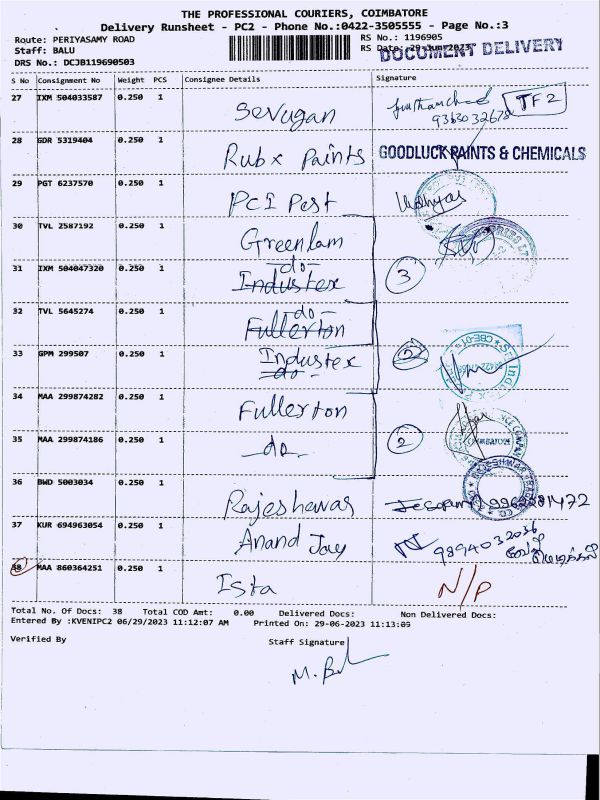 THE PROFESSIONAL COURIERS, COIMBATORE
Delivery Runsheet - PC2 - Phone No.:0422-3505555 - Page No.:3
Route: PERIYASAMY ROAD
RS No.: 1196905
Staff: BALU
RS Date: 29-Jun-2023
DOCUMENT DELIVERY
DRS No.: DCJB119690503
S No Consignment No Weight PCS Consignee Details Signature
27 IXM 504033587 0.250 1 Sevugan 9363032678 TF2
28 GDR 5319404 0.250 1 Rubx Paints GOODLUCK PAINTS & CHEMICALS
29 PGT 6237570 0.250 1 PCI Pest
30 TVL 2587192 0.250 1 Greenlam
31 IXM 504047320 0.250 1 -do- Industex 3
32 TVL 5645274 0.250 1 -do- Fullerton
33 GPM 299507 0.250 1 Industex -do- 2
34 MAA 299874282 0.250 1 Fullerton
35 MAA 299874186 0.250 1 -do- 2
36 BWD 5003034 0.250 1 Rajeshwar
37 KUR 694963054 0.250 1 Anand Jay 9894032036
38 MAA 860364251 0.250 1 Ista N/P
Total No. Of Docs: 38 Total COD Amt: 0.00 Delivered Docs: Non Delivered Docs:
Entered By :KVENIPC2 06/29/2023 11:12:07 AM Printed On: 29-06-2023 11:13:09
Verified By Staff Signature